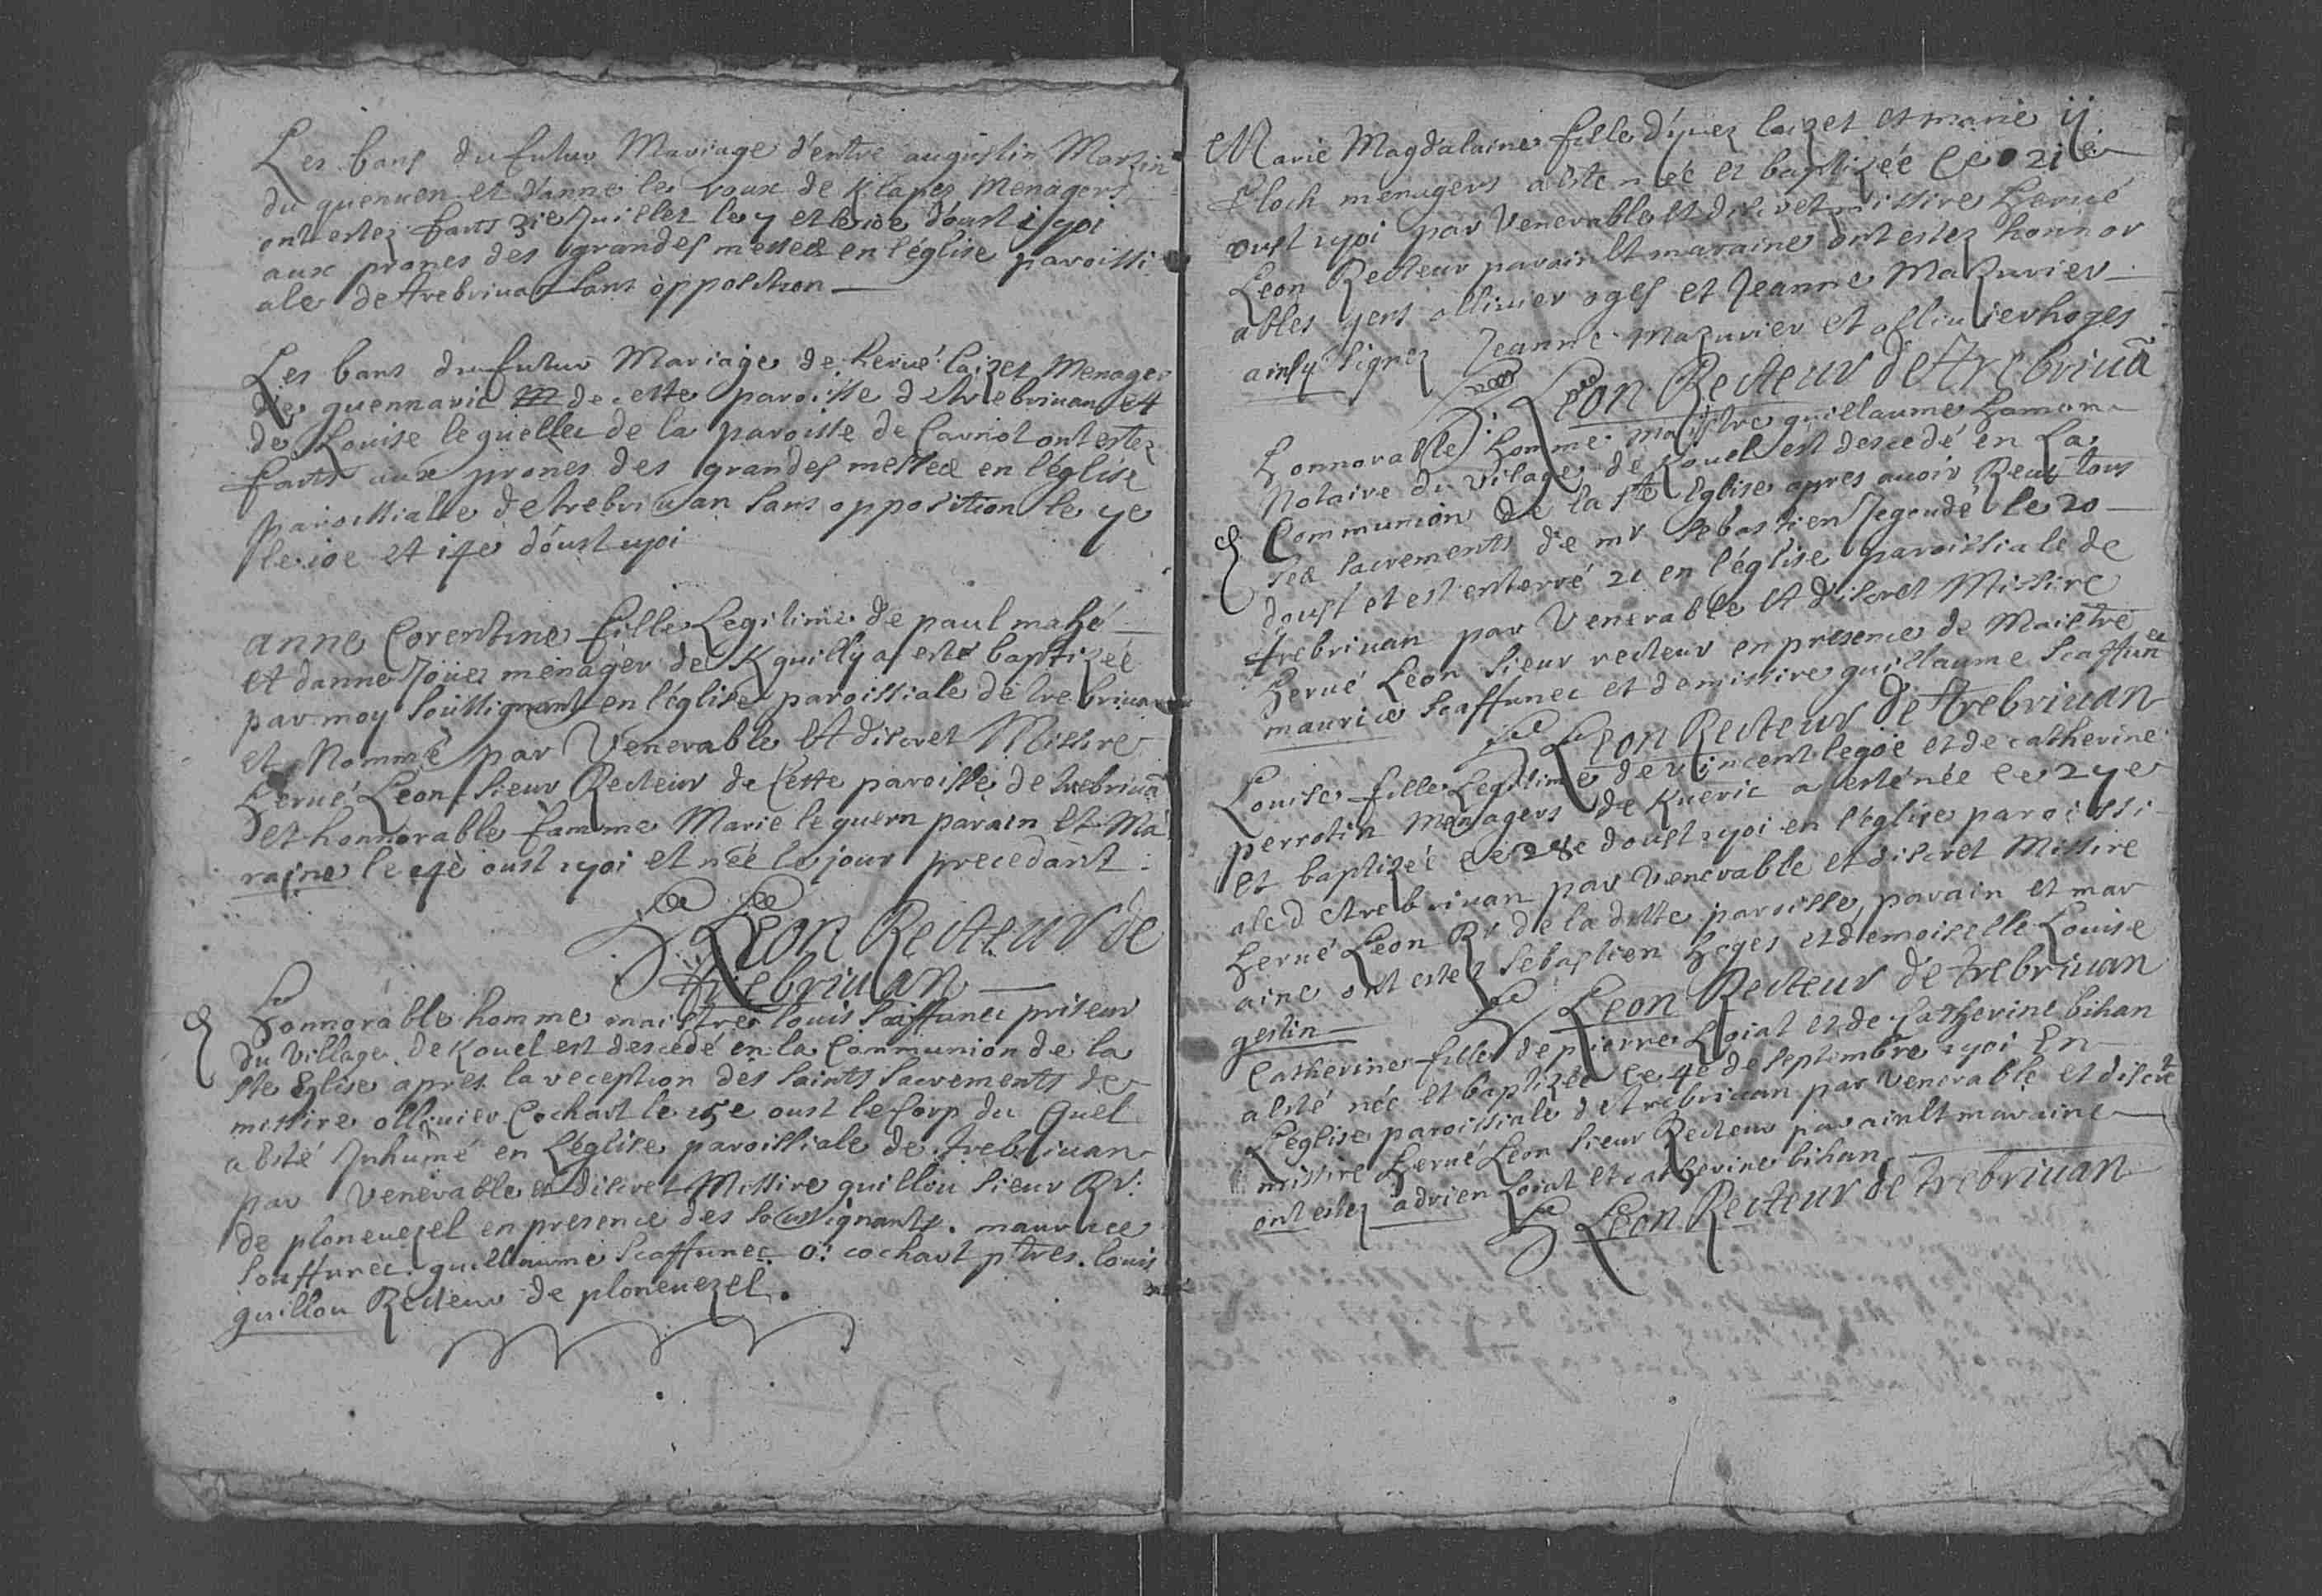 Les bans du futur Mariage d'entre augustin Martin
du guenuen et d'anne le roux de Klapez Menagers
ont estez faits 31e Juillet le 7 et le 10e d'oust 1701
aux prones des grandes messes en l'église paroissi
ale de trebrivan sans opposition
Les bans du futur Mariage de hervé laizet Menager
de guennavic de cette paroisse de trebrivan et
de Louise le guellec de la paroisse de Carnot ont estez
faits aux prones des grandes messes en l'église
paroissialle de trebrivan sans opposition le 7e
le 10e et 14e d'oust 1701
anne Corentine fille Legitime de paul mahé
et danne Joüez menager de Kguilly a esté baptizée
par moy soussignant en l'église paroissiale de trebrivan
et Nommé par Venerable et discret Missire
hervé Leon sieur Recteur de Cette paroisse de trebrivã
et honnorable famme Marie le guern parain et Ma
raine le oust 1701 et née le jour precedant.
Leon Recteur de
trebrivan
honnorable homme maistre louis scaffunec priseur
du Village de Kouel est descedé en la Communion de la
ste Eglise apres la reception des saints sacrements de
missire ollivier Cochart le 15e oust le Corp du quel
a esté Inhumé en l'église paroissiale de trebrivan
par Venerable et discret Missire guillou sieur Rr.
de plonevezel en presence des soussignants. maurice
scaffunec. guillaume scaffunec. o: cochart ptres. louis
guillou Recteur de plonevezel.
Marie Magdalaine fille d'yvez laizet et marie ij
Cloch menagers a esté née et baptizée Ce 21e
oust 1701 par Venerable et discret missire hervé
Leon Recteur parain et maraine ont estez honnor
ables gens ollivier oges et Jeanne Mazurier
ainsy signez Jeanne mazurier et ollivier hoges
Leon Recteur de trebrivã
honnorable homme maistre guillaume hamon
Notaire du vilage de Kouel est descedé en La
Communion de la ste Eglise apres avoir Receu tous
ses sacrements de mr sebastien Jegoudé le 20
doust et est enterré 21 en l'église paroissiale de
trebrivan par Venerable et discret Missire
hervé Leon sieur recteur en presence de Maistre
maurice scaffunec et de missire guillaume scaffunec
Leon Recteur de trebrivan
Louise fille Legitime de vincent le goe et de catherine
perrotin Menagers de Kveric a esté née ce 27e
et baptizée ce 28e doust 1701 en l'église paroissi
ale de trebrivan par Venerable et discret Missire
hervé Leon Rr de la ditte paroisse, parain et mar
aine ont estez sebastien hoges et demoiselle Louise
gestin
Leon Recteur de trebrivan
Catherine fille de pierre Loiat et de Catherine bihan
a esté née et baptizée Ce 4e de septembre 1701 En
L'église paroissiale de trebrivan par Venerable et discret
missire hervé Leon sieur Recteur parain et maraine
ont estez adrien Loiat et catherine bihan
Leon Recteur de trebrivan